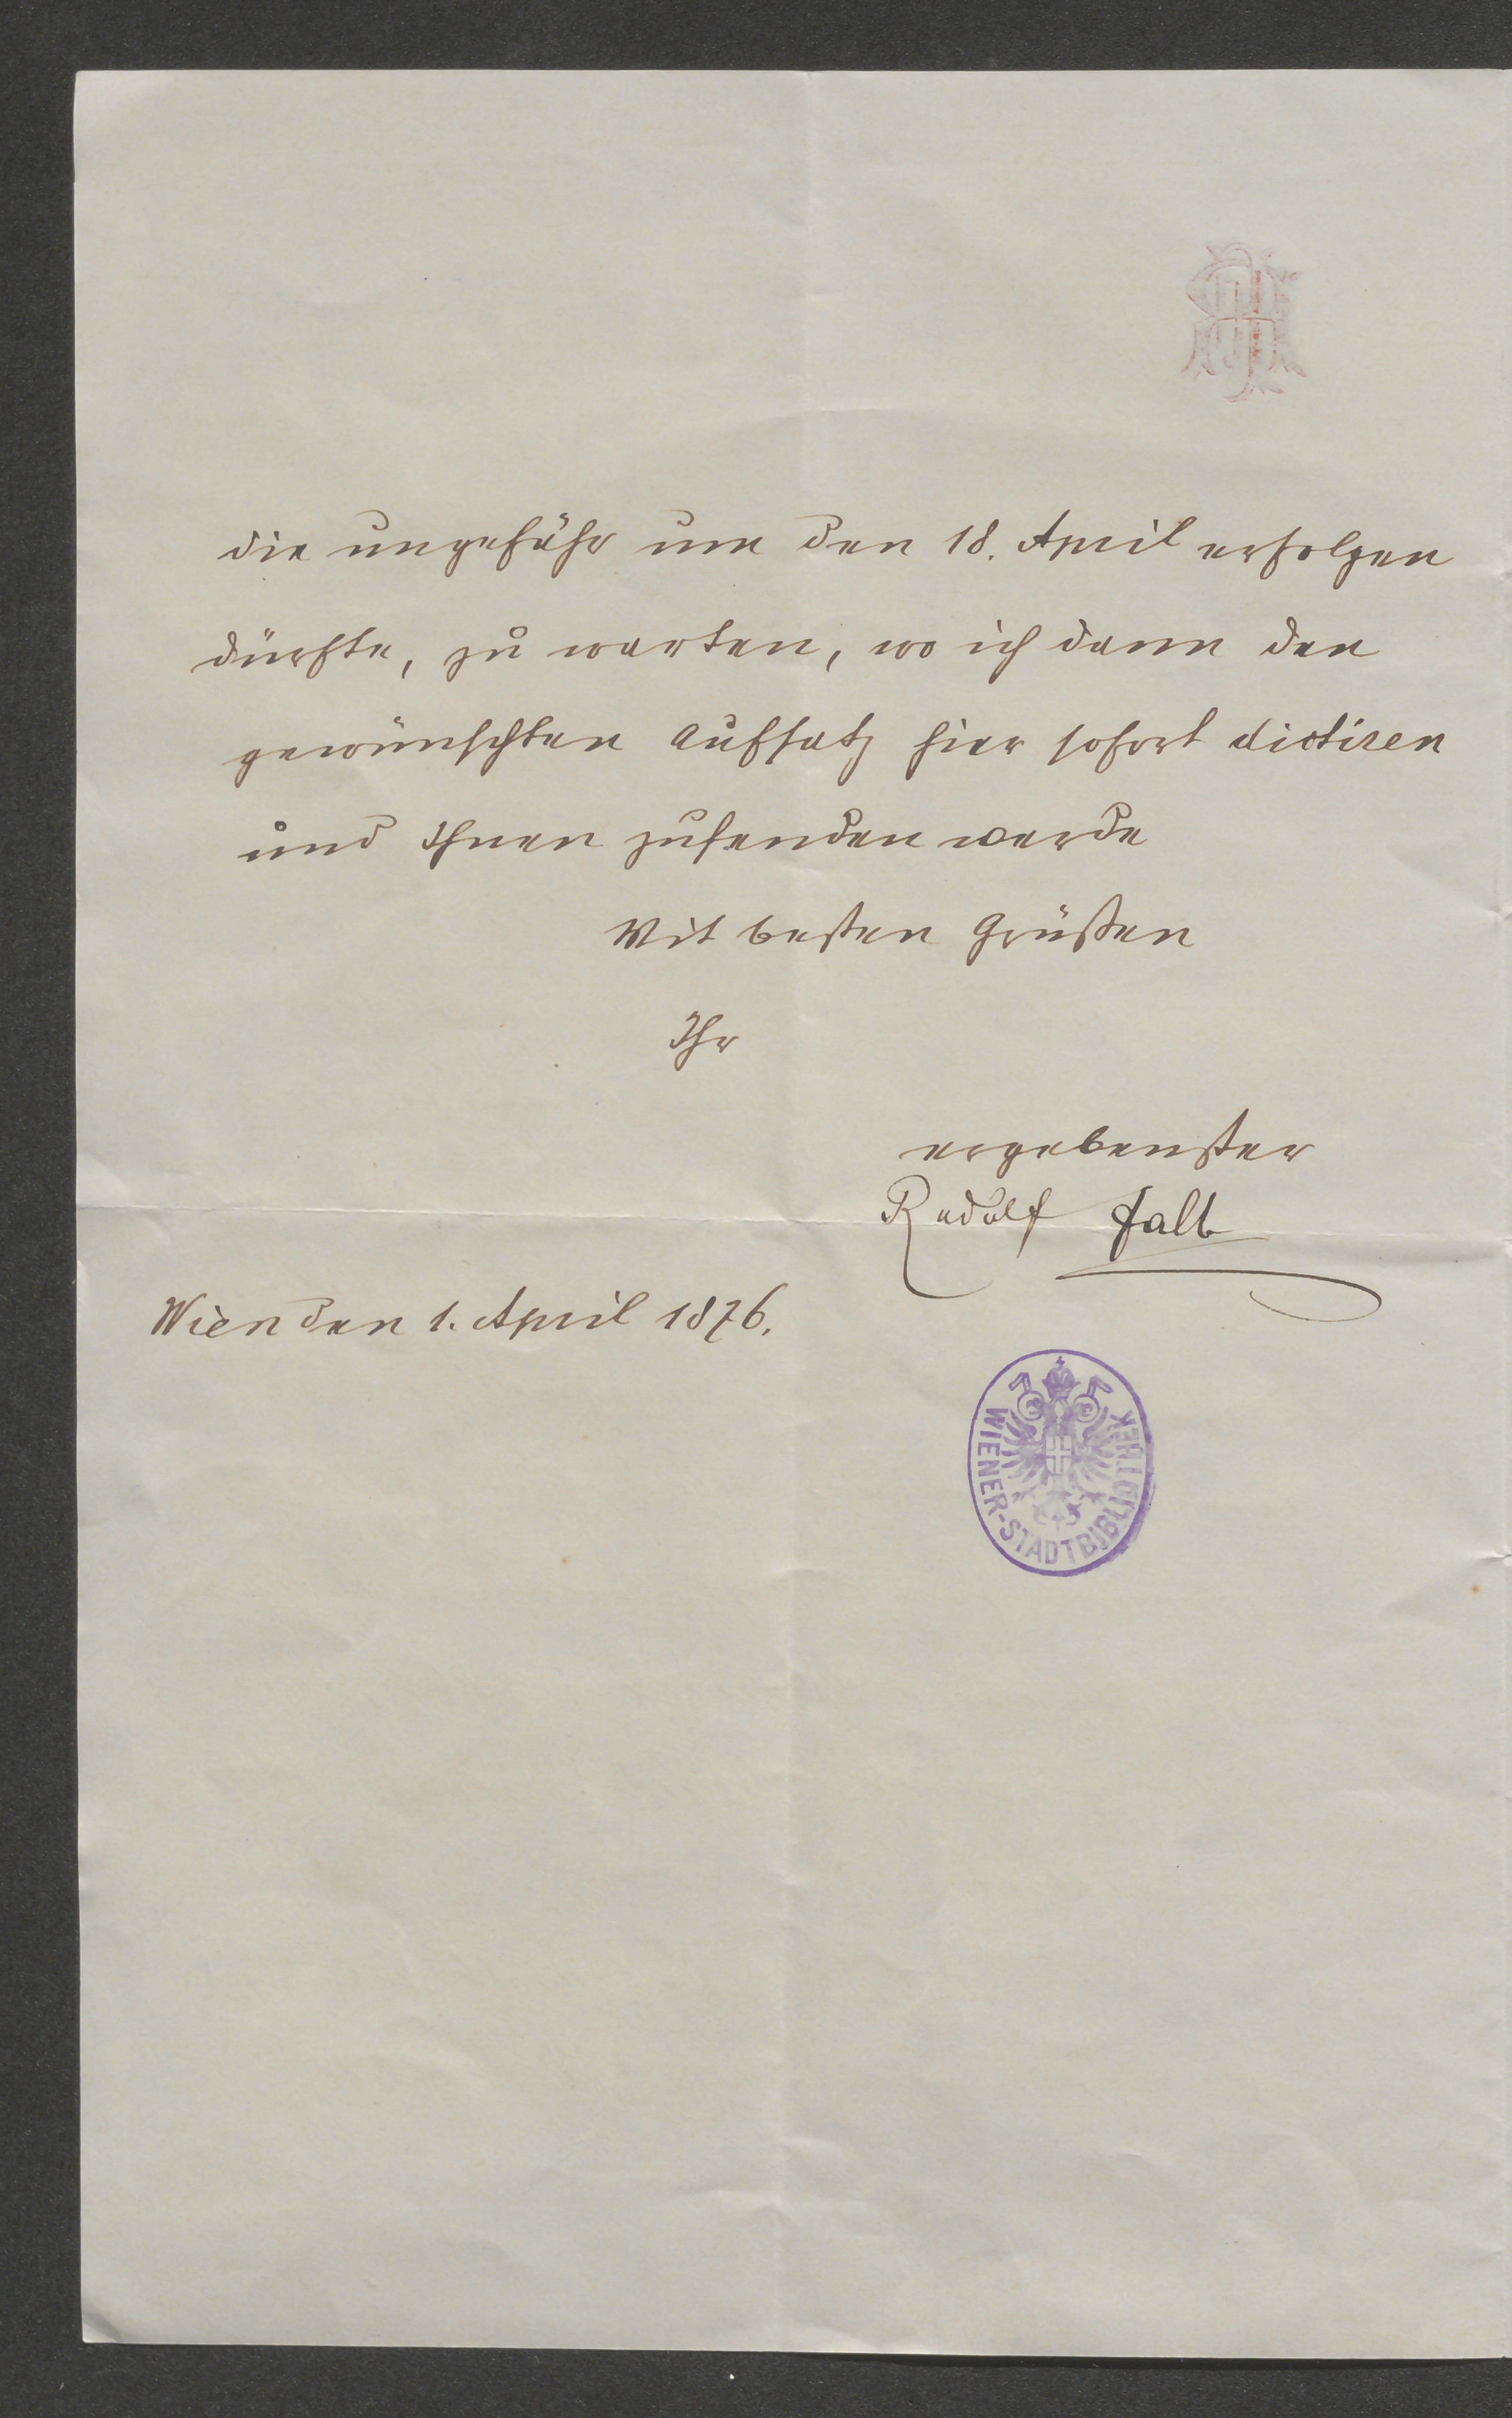 die ungefähr um den 18. April erfolgen
dürfte, zu warten, wo ich dann den
gewünschten Aufsatz hier sofort dictiren
und Ihnen zusenden werde
Mit besten Grüßen
Ihr
ergebenster
Rudolf Falb
Wien den 1. April 1876.
WIENER-STADTBIBLIOTHEK